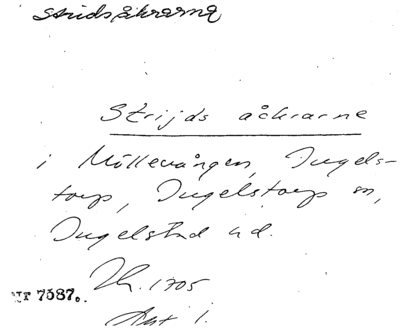 Stridsåkrarna
Strijds åckrarne
i Möllevången, Ingels-
torp, Ingelstorps sn,
Ingelstad hd.
Lh. 1705
Nr 7587.
Akt 1.